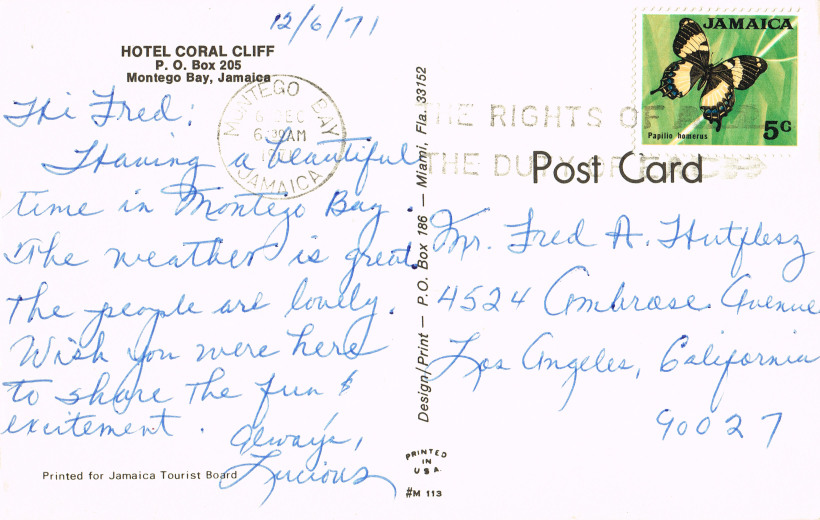 12/6/71
HOTEL CORAL CLIFF
P. O. Box 205
Montego Bay, Jamaica
Hi Fred:
Having a beautiful
time in Montego Bay.
The weather is great.
The people are lovely.
Wish you were here
to share the fun &
excitement.
Always,
Lucious
Printed for Jamaica Tourist Board
Design/Print — P.O. Box 186 — Miami, Fla. 33152
PRINTED
IN
U S A.
#M 113
MONTEGO BAY
6 DEC
6:30AM
JAMAICA
THE RIGHTS OF
THE DUTY OF
JAMAICA
Papilio homerus
5c
Post Card
Mr. Fred A. Hutflesz
4524 Ambrose Avenue
Los Angeles, California
90027